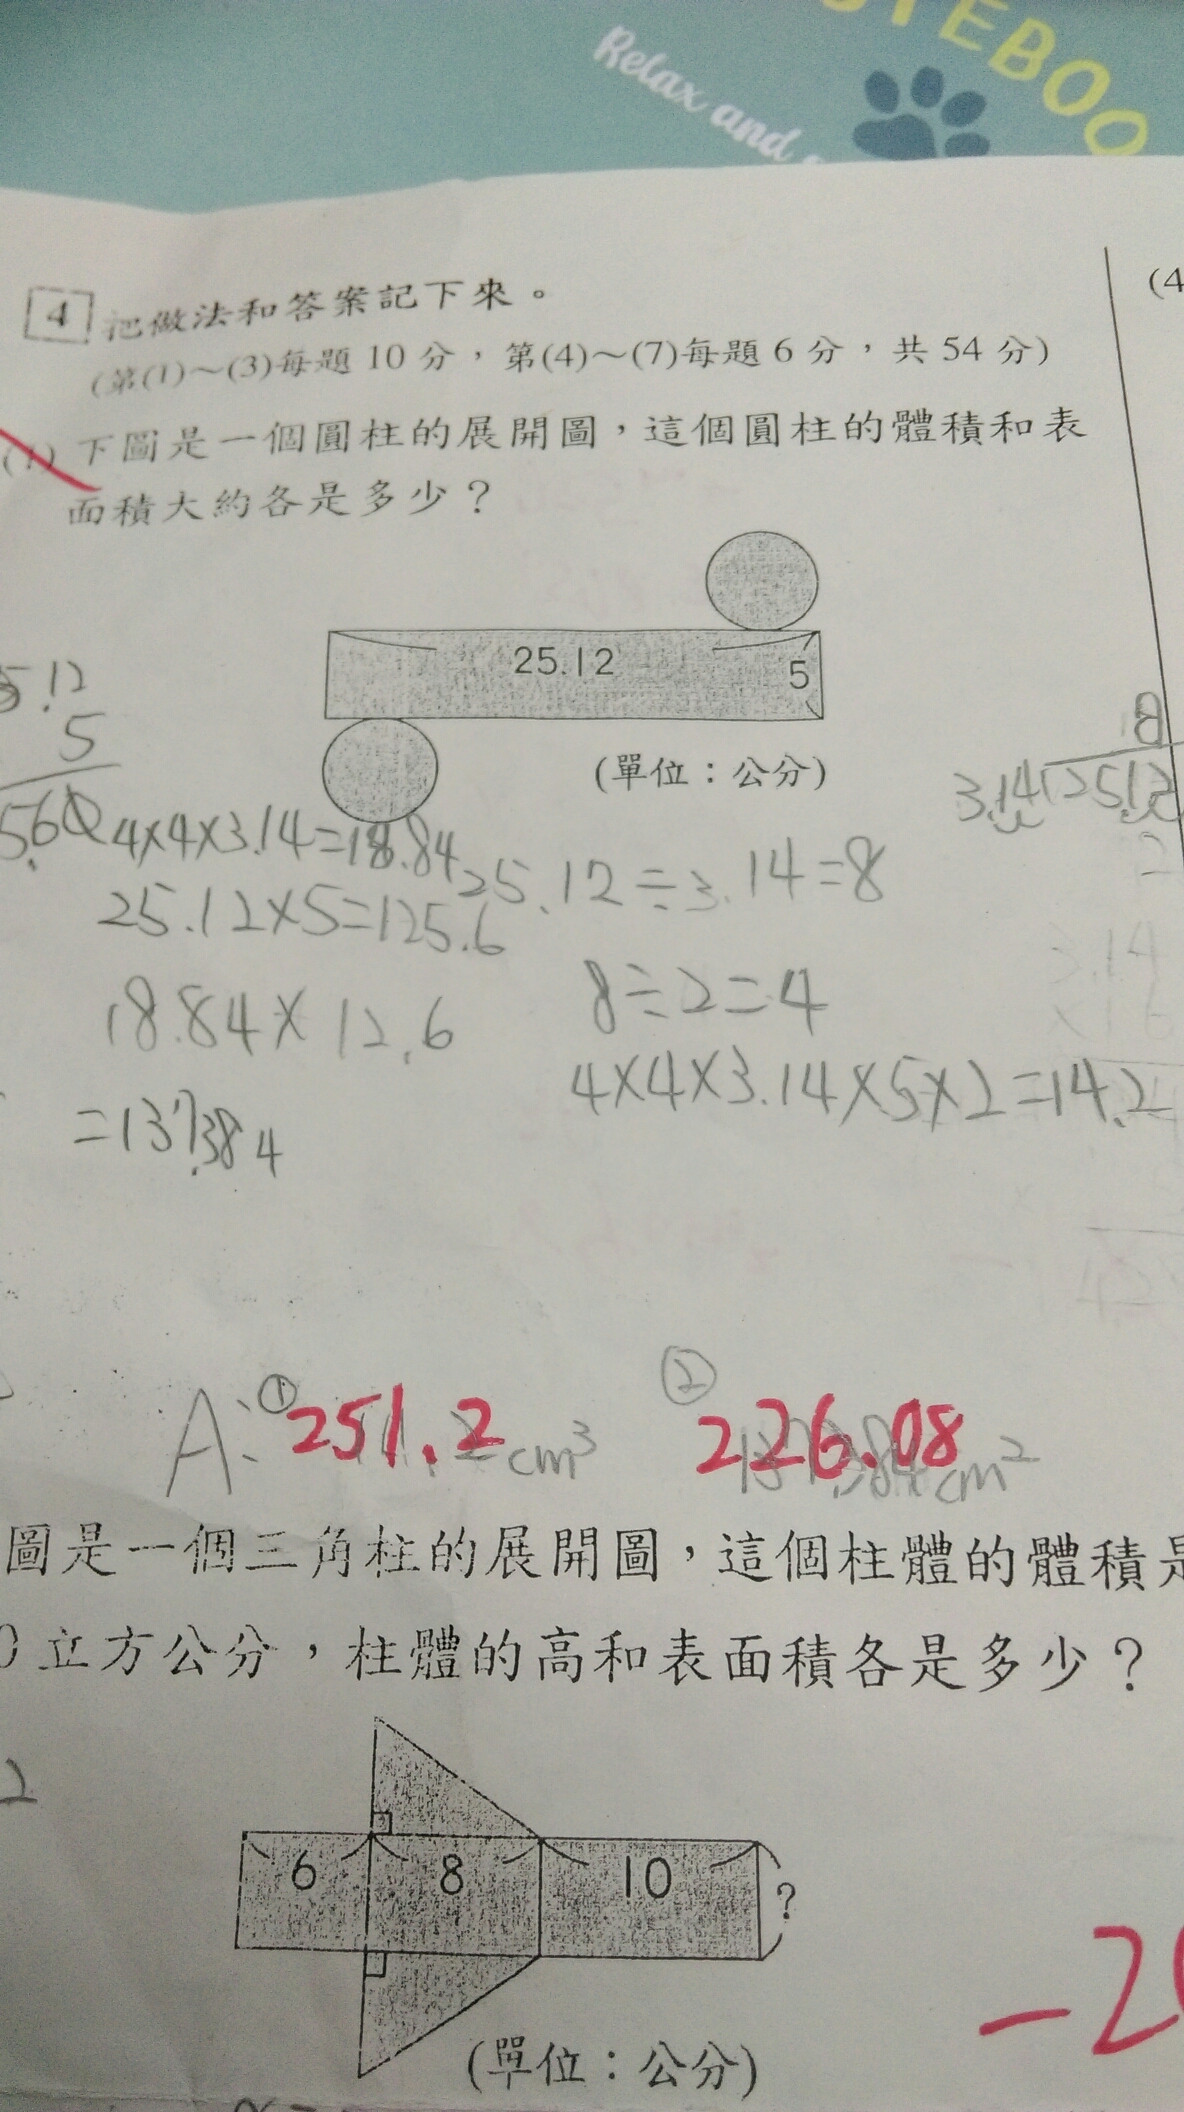 TEBOO
Relax and
4 把做法和答案記下來。
(第(1)～(3)每題 10 分，第(4)～(7)每題 6 分，共 54 分)
(4
(1) 下圖是一個圓柱的展開圖，這個圓柱的體積和表
面積大約各是多少？
25.12
5
(單位：公分)
5.12
5
5.60
3.14 25.12
4×4×3.14=18.84
25.12÷3.14=8
25.12×5=125.6
8÷2=4
18.84×12.6
4×4×3.14×5×2=14.2
=137.384
A:① 251.2 cm³ ② 226.08 cm²
圖是一個三角柱的展開圖，這個柱體的體積是
0 立方公分，柱體的高和表面積各是多少？
2
6 8 10 ?
-20
(單位：公分)